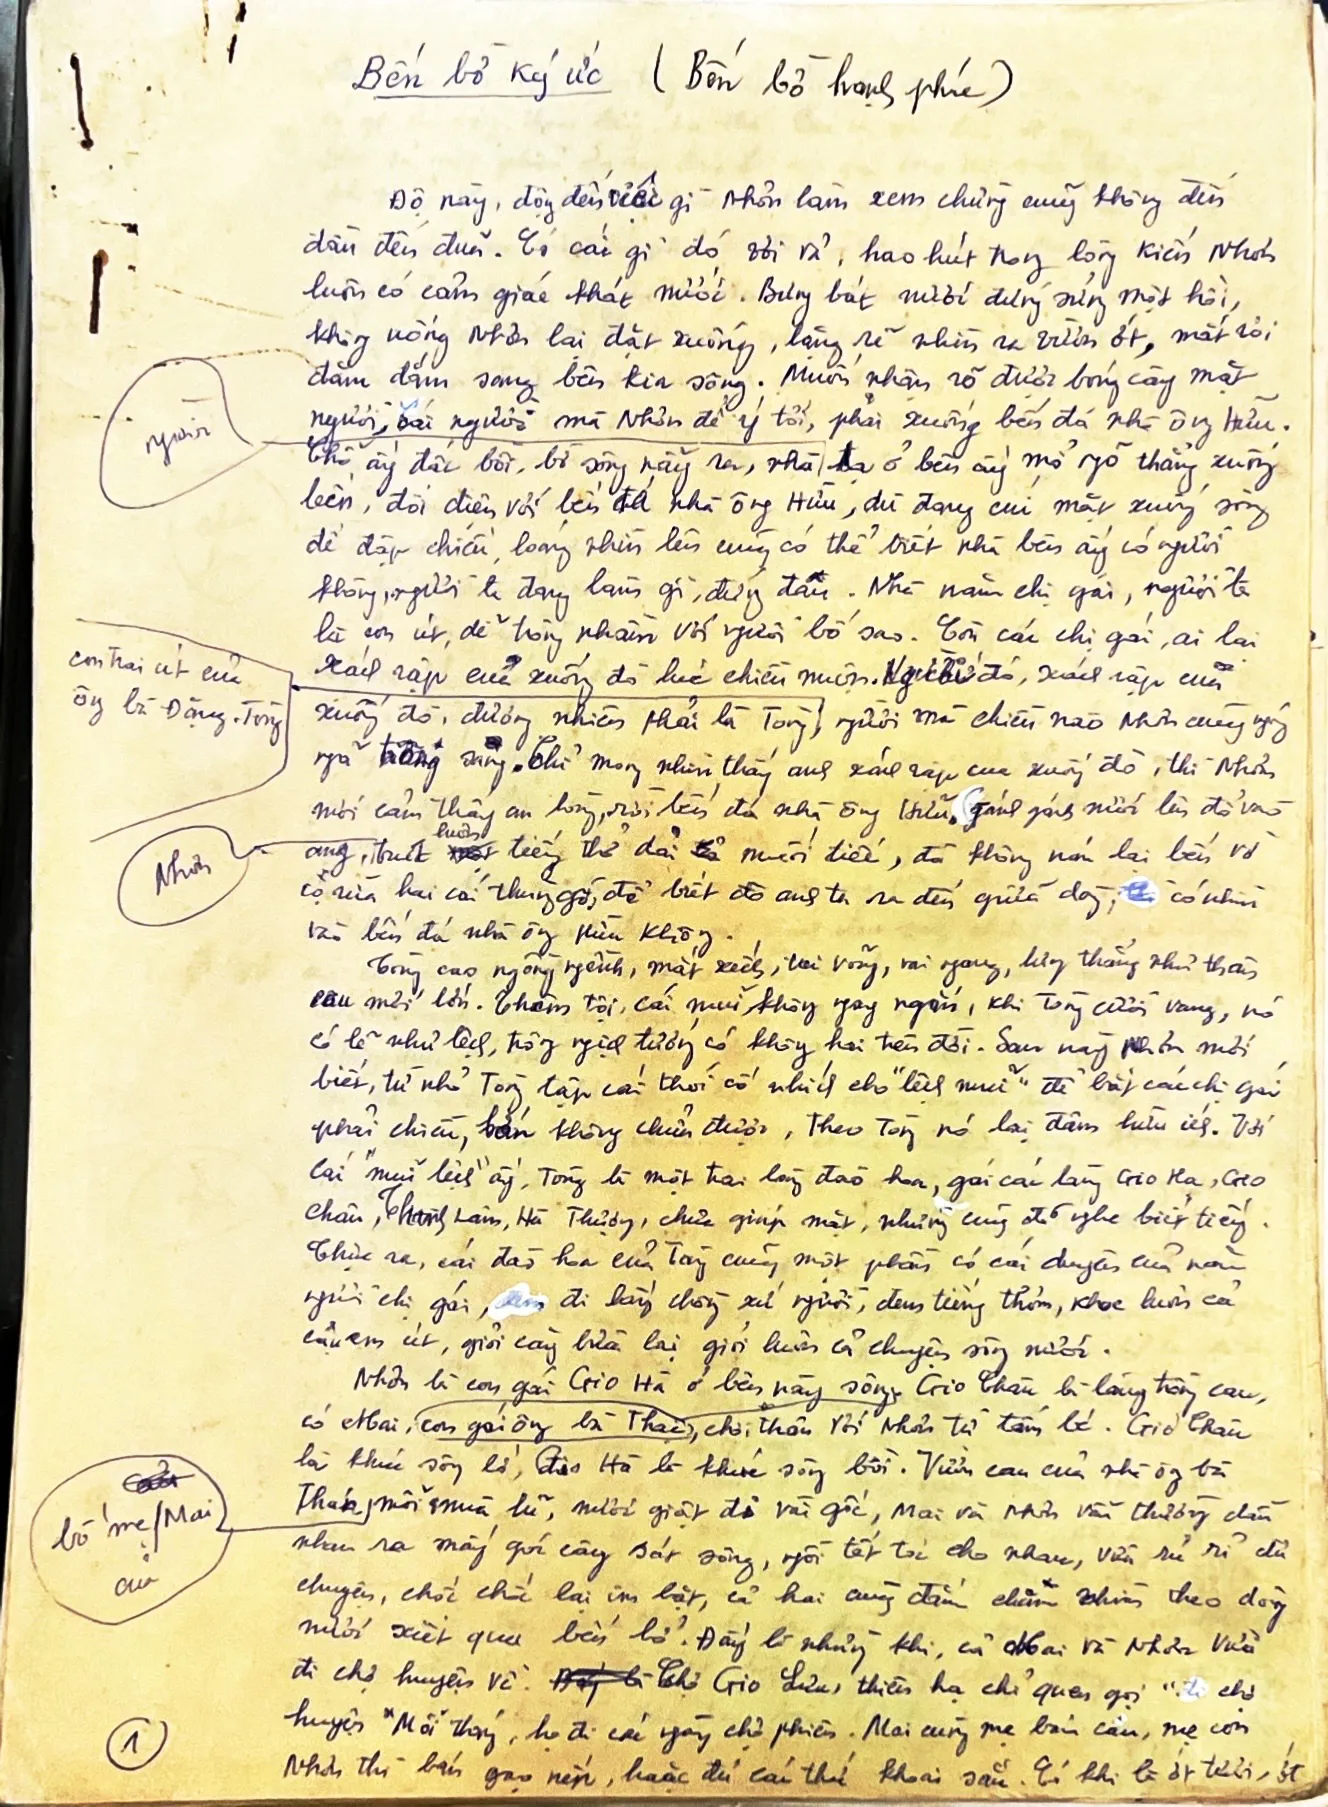 Bến bờ ký ức ( Bến bờ hạnh phúc )
Độ này, động đến việc gì Nhớn làm xem chừng cũng không đến
đầu đến đuũ. Có cái gì đó vời vợi, hao hụt trong lòng khiến Nhớn
luôn có cảm giác khát nước. Bưng bát nước đứng sững một hồi,
không uống Nhớn lại đặt xuống, lặng lẽ nhìn ra vườn ớt, mắt rời
đăm đắm sang bên kia sông. Muốn nhận rõ được bóng cây mặt
người, cái người mà Nhớn để ý tới, phải xuống bến đá nhà ông Hữu.
Chỗ ấy đất bồi, bờ sông nảy ra, nhà ta ở bên ấy mở ngõ thẳng xuống
bến, đối diện với bến đá nhà ông Hữu, dù đang cúi mặt xuống sông
để đập chiếu, loáng nhìn lên cũng có thể biết nhà bên ấy có người
không, người ta đang làm gì, đứng đâu. Nhà năm chị gái, người ta
là con út, dễ trông nhầm với người bố sao. Còn các chị gái, ai lại
xách rập cua xuống đò lúc chiều muộn. Người đó, xách rập cua
xuống đò, đương nhiên phải là Tòng, người mà chiều nào Nhớn cũng ngóng
ngả trông sang. Chỉ mong nhìn thấy anh xách rập cua xuống đò, thì Nhớn
mới cảm thấy an lòng, rời bến đá nhà ông Hữu, gánh gánh nước lên đổ vào
ang, trút luôn tiếng thở dài nuối tiếc, đã không nán lại bến vờ
cọ rửa hai cái thùng gỗ, để biết đò anh ta ra đến giữa dòng, có nhìn
vào bến đá nhà ông Hữu không.
Tòng cao ngồng ngềnh, mắt xếch, tai vổng, vai ngang, lưng thẳng như thân
cau mới lớn. Thêm tội, cái mũi không ngay ngắn, khi Tòng cười vang, nó
có lẽ như lệch, trông nghịch tướng có không hai trên đời. Sau này Nhớn mới
biết, từ nhỏ Tòng tập cái thói cố nhích cho "lệch mũi" để bắt các chị gái
phải chiều, bán không chừa được, theo Tòng nó lại đâm hữu ích. Với
cái "mũi lệch" ấy, Tòng là một trai làng đào hoa, gái các làng Gio Hà, Gio
Châu, Thanh Lâm, Hà Thượng, chưa giáp mặt, nhưng cũng đã nghe biết tiếng.
Thực ra, cái đào hoa của Tòng cũng một phần có cái duyên của năm
người chị gái, đi lấy chồng xứ người, đem tiếng thơm, khoe luôn cả
cậu em út, giỏi cày bừa lại giỏi luôn cả chuyện sông nước.
Nhớn là con gái Gio Hà ở bên này sông. Gio Châu là làng trồng cau,
có Mai, con gái ông bà Thạc, chơi thân với Nhớn từ tấm bé. Gio Châu
là khúc sông lở, Gio Hà là khúc sông bồi. Vườn cau của nhà ông bà
Thạc, mỗi mùa lũ, nước giật đi vài gốc, Mai và Nhớn vẫn thường dắt
nhau ra mấy gốc cây sát sông, ngồi tết tóc cho nhau, vừa rủ rỉ đủ
chuyện, chốc chốc lại im bặt, cả hai cùng đăm chăm nhìn theo dòng
nước xiết qua bến bờ. Đấy là những khi, cả Mai và Nhớn vừa
đi chợ huyện về. Chợ Gio Linh, thiên hạ chỉ quen gọi "đi chợ
huyện" Mỗi tháng, họ đi các ngày chợ phiên. Mai cùng mẹ bán cau, mẹ con
Nhớn thì bán gạo nếp, hoặc đủ các thứ khoai sắn. Có khi là ớt tươi, ớt
người
con trai út của
ông bà Đặng-Tòng
Nhớn
bố mẹ Mai
của
1